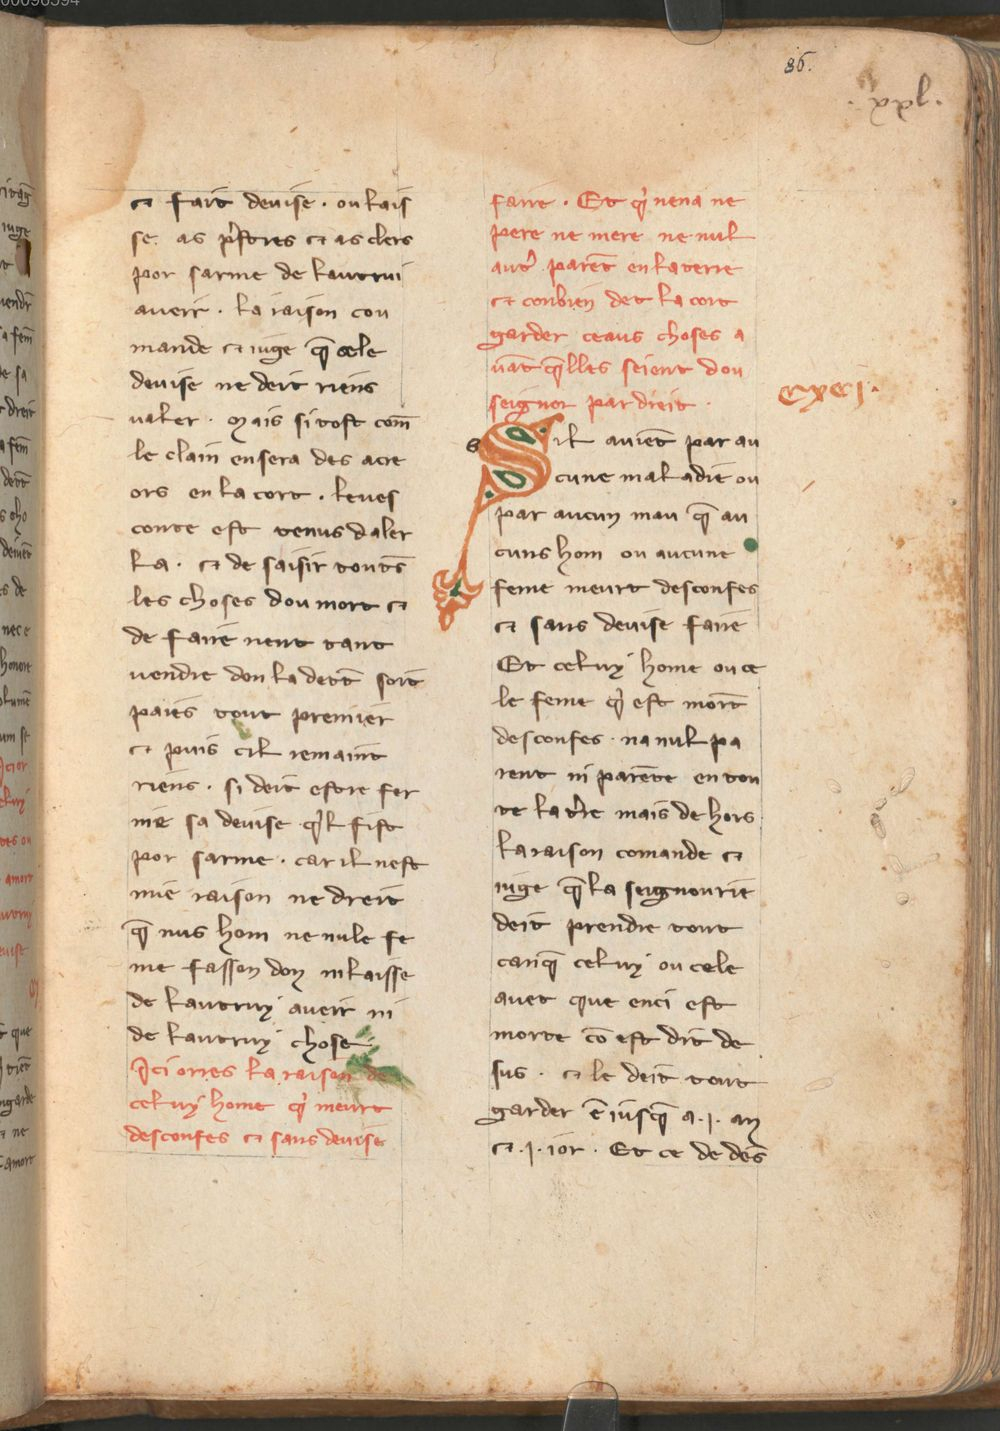 86.
.xxl.
et fait deuise . ou lais
se. as p̾stres et as clers
por sarme de lautrui
aueir . la raison con
mande et iuge q̄ cele
deuise ne deit riens
ualer . Mais si tost com̄
le claim en sera des acre
ors en la cort . leues
conte est tenus daler
la . et de saisir toutes
les choses dou mort et
de faire nent tant
uendre don la dett̄ soit
paies tout premier
et puis cil remaint
riens . si deit estre fer
me sa deuise q̾l fist
por sarme . car il nest
mie raison ne dreit
q̄ nus hom ne nule fe
me fasson don ni laisse
de lautruy aueir ni
de lautruy chose.
Ici orres la raison de
celuy home q̾ meurt
desconfes et sans deuise
faire . Et q̾ nena ne
pere ne mere ne nul
aut̾ parēt en la terre
et conbien det la cort
garder ceaus choses a
uāt q̄lles seient dou
seignor par dreit .
cxcij.
Sil auient par au
cune maladie ou
par aucun mau q̄ au
cuns hom ou aucune
feme meurt desconfes
et sans deuise faire
Et celuy home ou ce
le feme q̾ est mort
desconfes . na nul pa
rent ni parēte en tou
te la t̾re mais de hors
la raison comande et
iuge q̄ la seignourie
deit prendre tout
canq̄ celuy ou cele
auet que enci est
morte cō est dit de
sus . et le deit tout
garder ē iusq̄ a .j. an
et .j. ior . Et ce de dēs